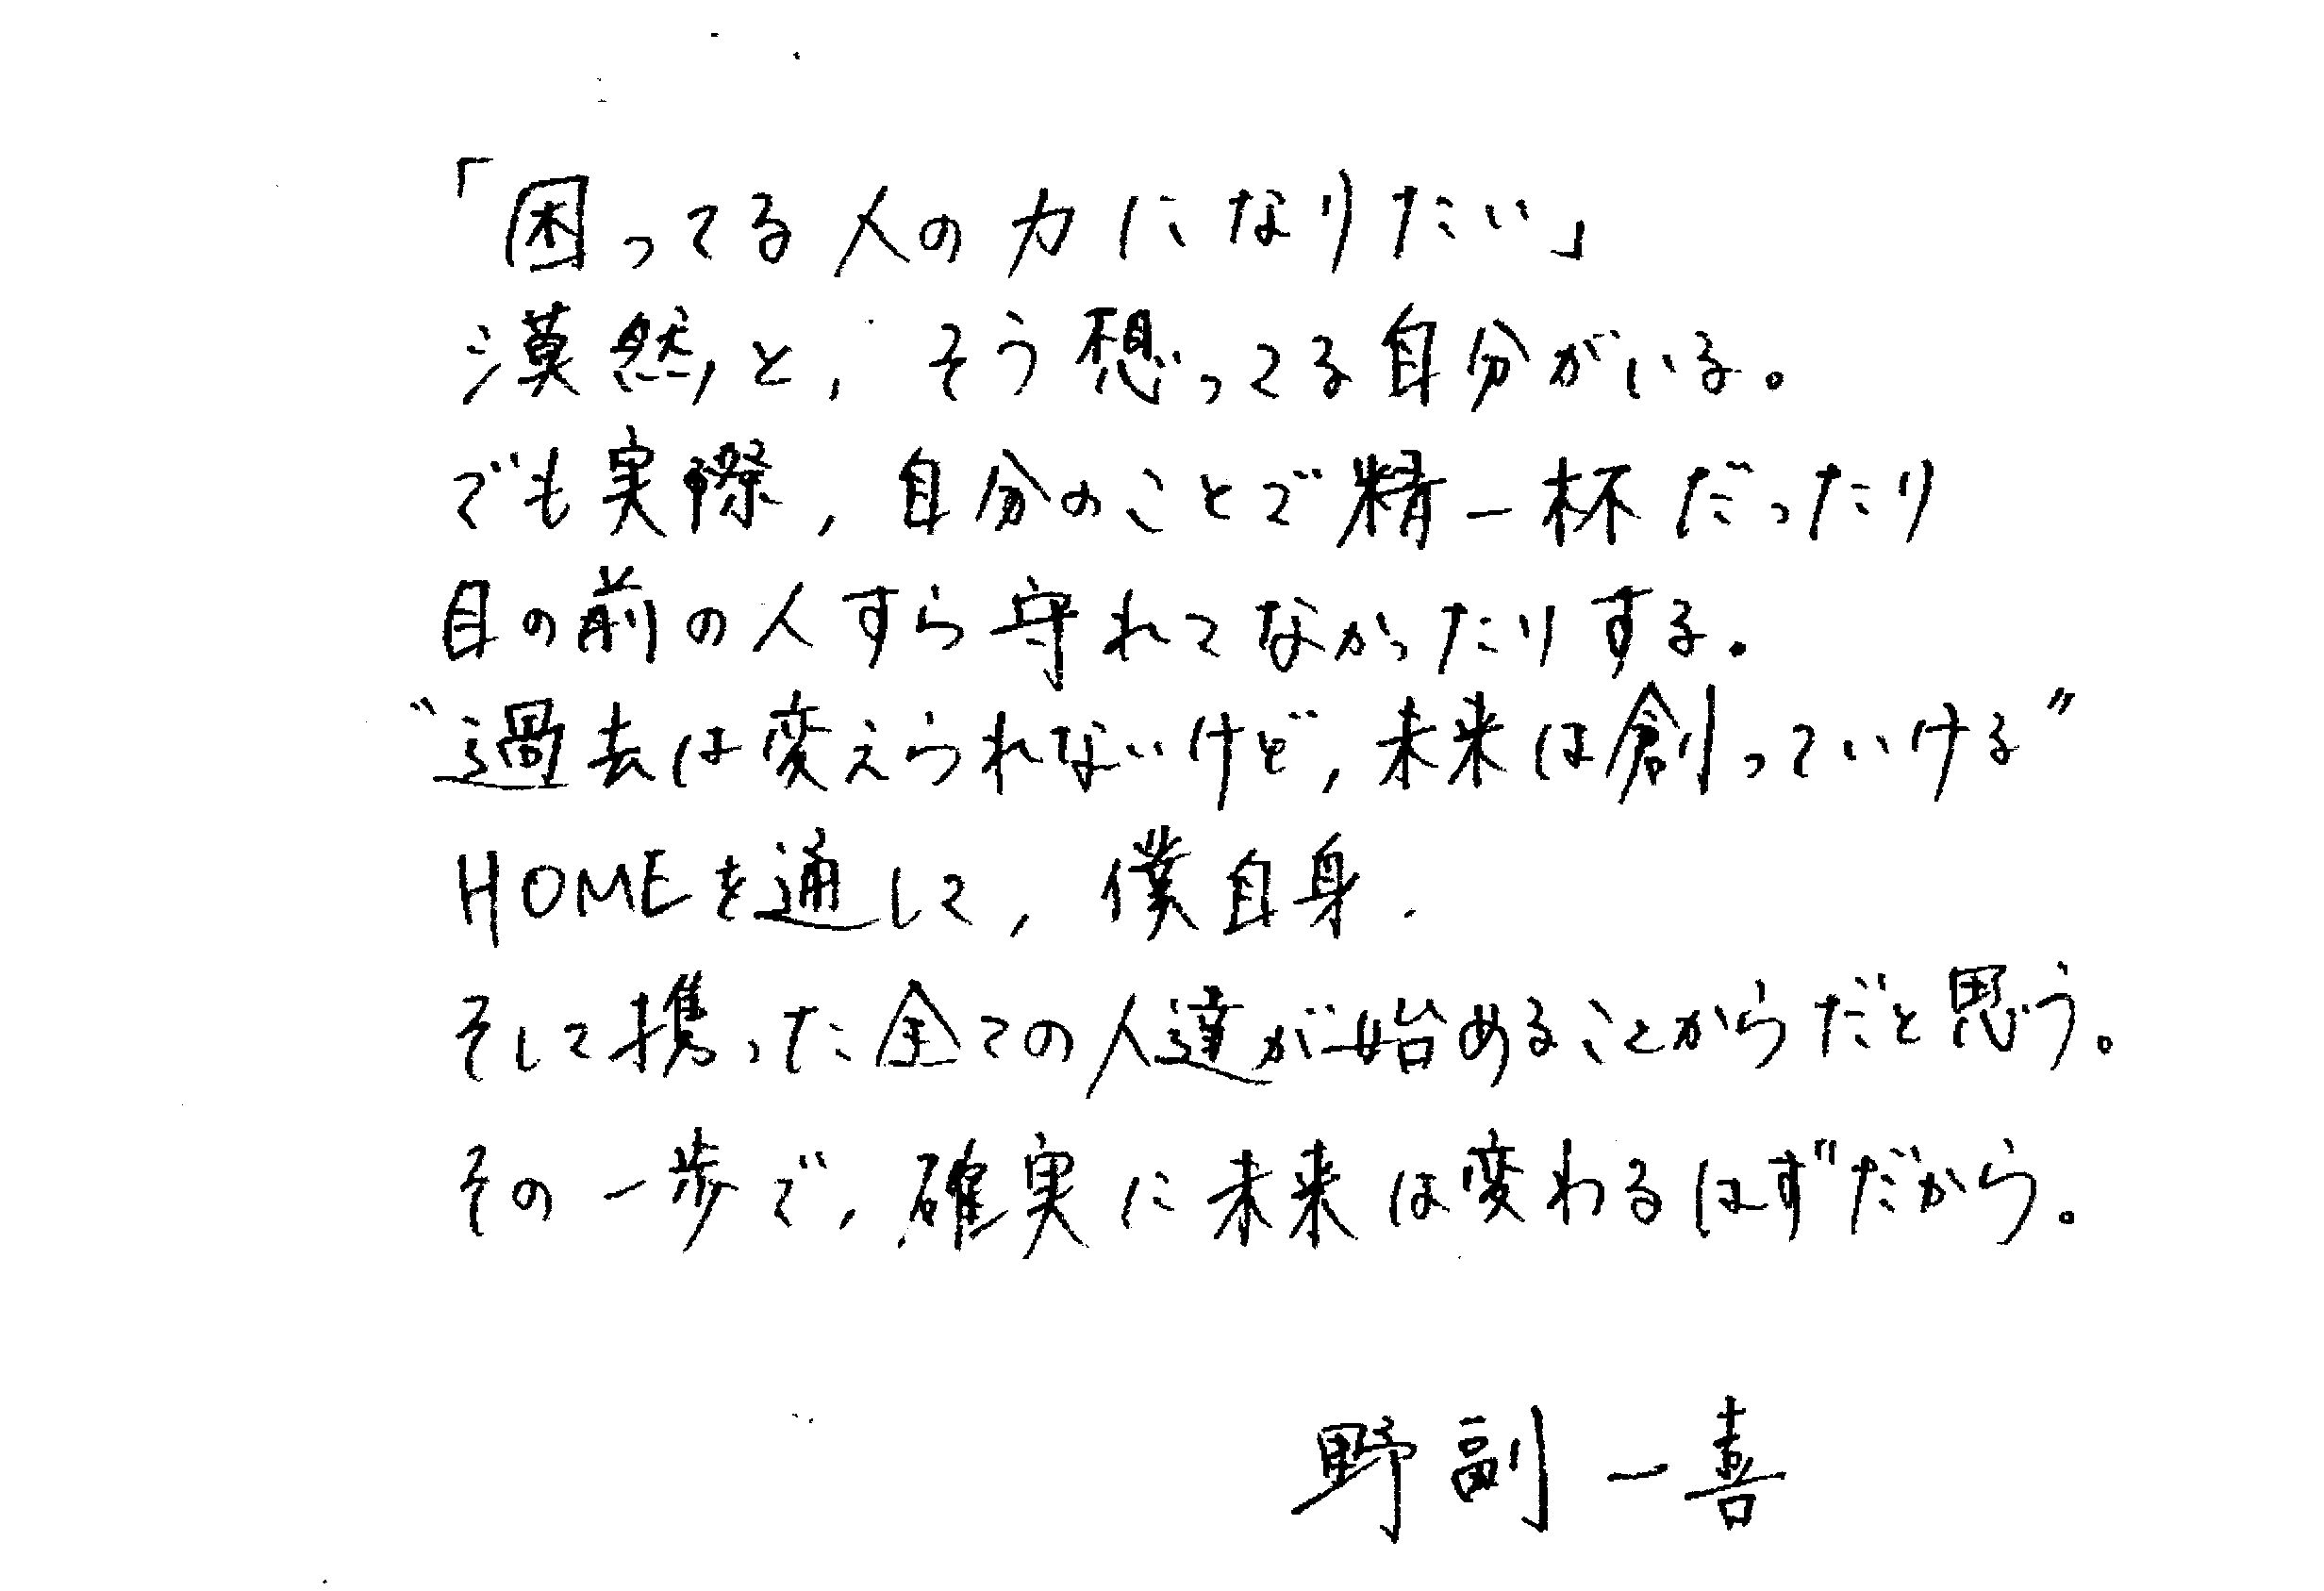 「困ってる人の力になりたい」
漠然と、そう想ってる自分がいる。
でも実際、自分のことで精一杯だったり
目の前の人すら守れてなかったりする。
〝過去は変えられないけど、未来は創っていける〟
HOMEを通して、僕自身、
そして携った全ての人達が始めることからだと思う。
その一歩で、確実に未来は変わるはずだから。
野副一喜